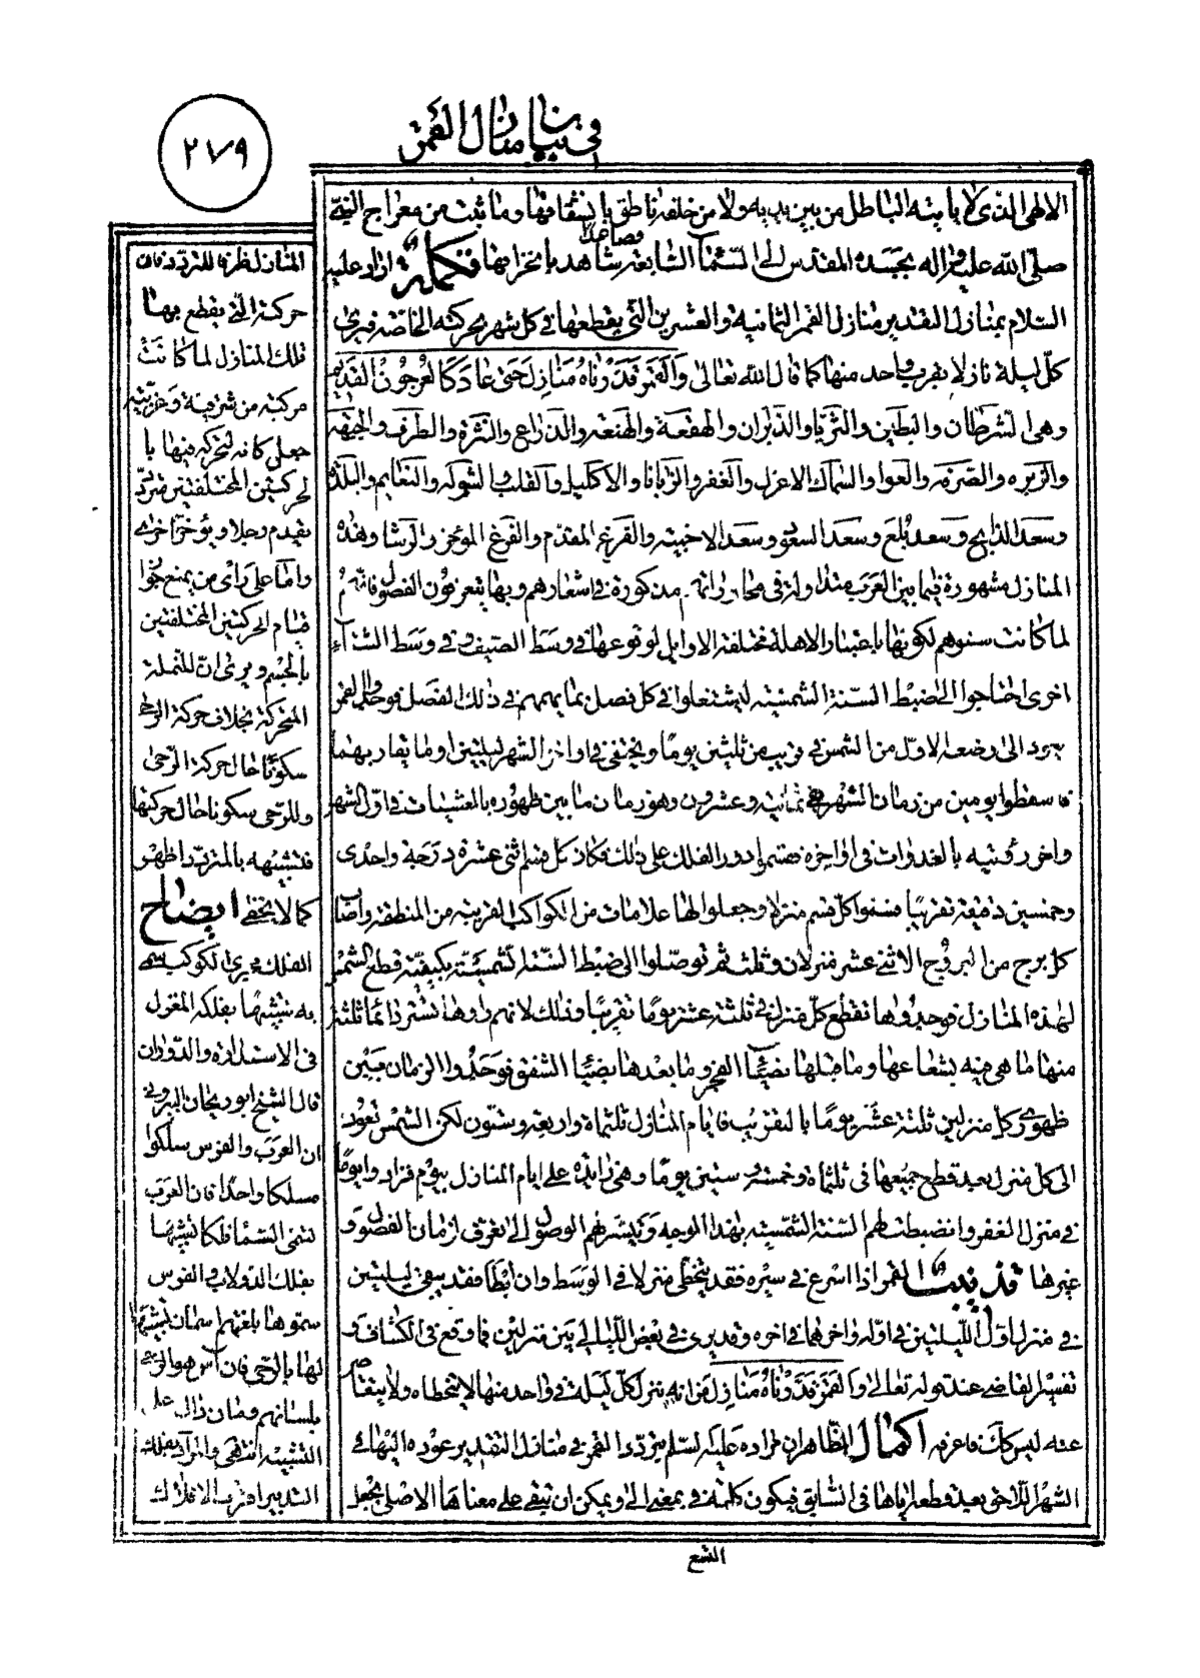 في بيان منازل القمر
٢٧٩
الالهي الذي لا يأتيه الباطل من بين يديه ولا من خلفه ناطق بانشقاقها وما ثبت من معراج النبي
صلى الله عليه واله بجسده المقدس الى السماء السابعة فصاعدا شاهد بانخراقها تكملة اراد عليه
السلام بمنازل التقدير منازل القمر الثمانية والعشرين التي يقطعها في كل شهر بحركته الخاصة فيرى
كل ليلة نازلا بقرب واحد منها كما قال الله تعالى والقمر قدرناه منازل حتى عاد كالعرجون القديم
وهي الشرطان والبطين والثريا والدبران والهقعة والهنعة والذراع والنثرة والطرف والجبهة
والزبره والصرفه والعوا والسماك الاعزل والغفر والزبانا والاكليل والقلب والشوله والنعايم والبلده
وسعد الذابح وسعد بلع وسعد السعود وسعد الاخبيه والفرغ المقدم والفرغ المؤخر والرشا وهذه
المنازل مشهورة فيما بين العرب متداولة في محاوراتهم مذكورة في اشعارهم وبها يتعرفون الفصول فانهم
لما كانت سنوهم لكونها باعتبار الاهلة مختلفة الاوايل لوقوعها في وسط الصيف وفي وسط الشتاء
اخرى احتاجوا الى ضبط السنة الشمسية ليشتغلوا في كل فصل بما يهمهم في ذلك الفصل فوجدوا القمر
يعود الى وضعه الاول من الشمس في قريب من ثلثين يوما ويختفي في اواخر الشهر ليلتين او ما يقاربهما
فاسقطوا يومين من زمان الشهر فبقي ثمانية وعشرون وهو زمان ما بين ظهوره بالعشيات في اول الشهر
واخر رؤيته بالغدوات في اواخره فقسموا دور الفلك على ذلك فكان كل قسم اثنى عشرة درجة واحدى
وخمسين دقيقة تقريبا فسموا كل قسم منزلا وجعلوا لها علامات من الكواكب القريبه من المنطقة واصاب
كل برج من البروج الاثنى عشر منزلان وثلث ثم توصلوا الى ضبط السنة الشمسية بكيفية قطع الشمس
لهذه المنازل فوجدوها تقطع كل منزل في ثلثة عشر يوما تقريبا وذلك لانهم راوها تستر دائما ثلثة
منها ما هي فيه بشعاعها وما قبلها بضياء الفجر وما بعدها بضياء الشفق فوجدوا الزمان بين
ظهوري كل منزلين ثلثة عشر يوما بالتقريب فايام المنازل ثلثماة واربعة وستون لكن الشمس تعود
الى كل منزل بعد قطع جميعها في ثلثماة وخمسة وستين يوما وهي زايدة على ايام المنازل بيوم فزادوا يوما
في منزل الغفر وانضبطت لهم السنة الشمسية بهذا الوجه وتيسر لهم الوصول الى تعرف ازمان الفصول و
غيرها تذنيب القمر اذا اسرع في سيره فقد يتخطى منزلا في الوسط وان ابطأ فقد يبقى ليلتين
في منزل اول الليلتين في اوله واخرهما في اخره وقد يرى في بعض الليالي بين منزلين فما وقع في الكشاف و
تفسير القاضي عند قوله تعالى والقمر قدرناه منازل من انه ينزل كل ليلة في واحد منها لا يتخطاه ولا يتقاصر
عنه ليس كذلك فاعرفه اكمال الظاهر ان مراده عليه السلم بتردد القمر في منازل التقدير عوده اليها في
الشهر اللاحق بعد قطعه اياها في السابق فيكون كلمة في بمعنى الى ويمكن ان تبقى على معناها الاصلي بجعل
المنازل ظرفا للتردد فان
حركته التي يقطع بها
تلك المنازل لما كانت
مركبة من شرقية وغربية
جعل كانه لتحركه فيها با
لحركتين المختلفتين متردد
يقدم رجلا ويؤخر اخرى
واما على رأى من يمنع جواز
قيام الحركتين المختلفتين
بالجسم ويرى ان للنملة
المتحركة بخلاف حركة الرحى
سكونا حال حركة الرحى
وللرحى سكونا حال حركتها
فتشبيهه بالمتردد اظهر
كما لا يخفى ايضاح
الفلك مجرى الكوكب سمي
به تشبيها بفلكة المغزل
في الاستدارة والدوران
قال الشيخ ابو ريحان البيروني
ان العرب والفرس سلكوا
مسلكا واحدا فان العرب
تسمى السماء فلكا تشبيها
بفلك الدولاب والفرس
سموها بلغتهم اسمان تشبيها
لها بالرحى فان آس هو الرحى
بلسانهم ومان دال على
التشبيه انتهى والمراد بفلك
التدبير اقرب الافلاك
التسع